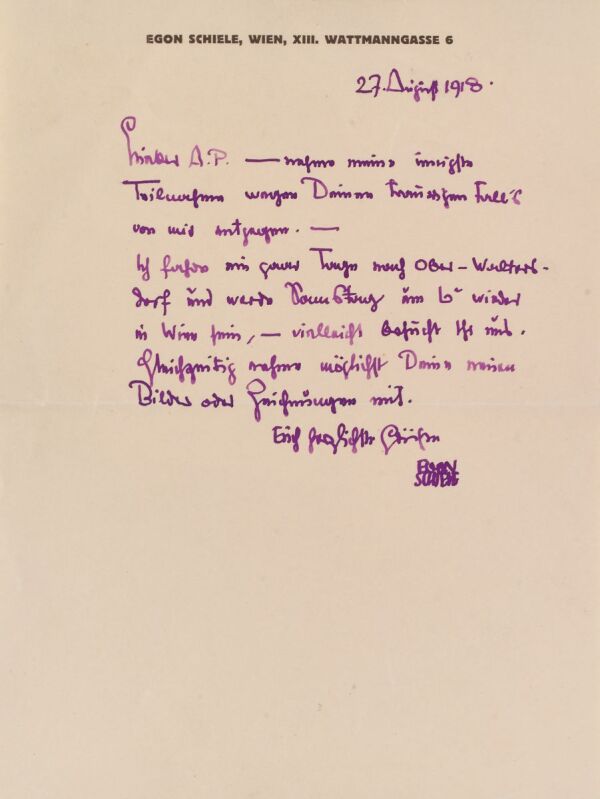 EGON SCHIELE, WIEN, XIII. WATTMANNGASSE 6
27. August 1918.
Lieber A.P. — nehme meine innigste
Teilnahme wegen Deinen traurigen Fall's
von mir entgegen. —
Ich fahre ein paar Tage nach Ober-Walters-
dorf und werde Samstag um 6h wieder
in Wien sein, — vielleicht besucht Ihr uns.
Gleichzeitig nehme möglichst Deine neuen
Bilder oder Zeichnungen mit.
Euch herzlichste Grüße
EGON
SCHIELE